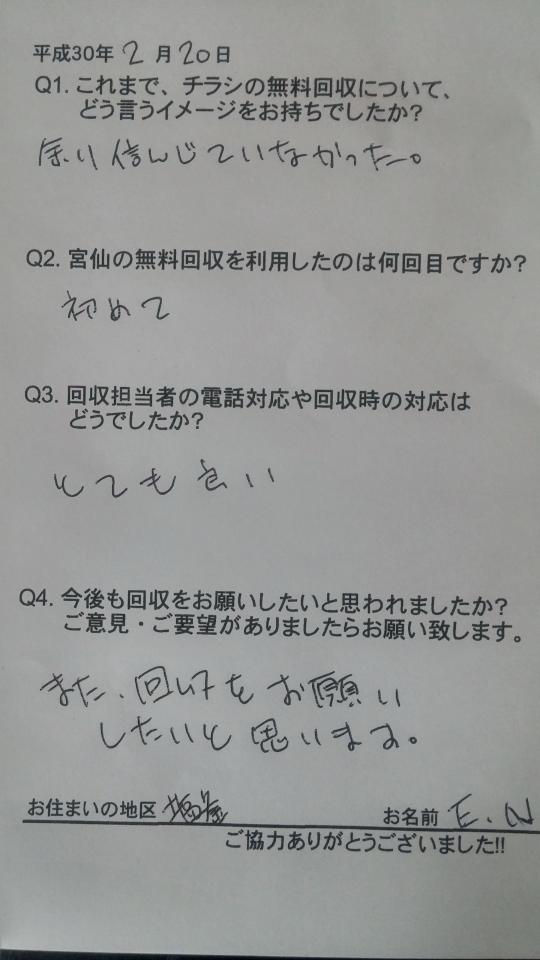 平成30年 2 月 20 日
Q1. これまで、チラシの無料回収について、
どう言うイメージをお持ちでしたか?
余り信んじていなかった。
Q2. 宮仙の無料回収を利用したのは何回目ですか?
初めて
Q3. 回収担当者の電話対応や回収時の対応は
どうでしたか?
とても良い
Q4. 今後も回収をお願いしたいと思われましたか?
ご意見・ご要望がありましたらお願い致します。
また、回収をお願い
したいと思います。
お住まいの地区 お名前 E.N
ご協力ありがとうございました!!